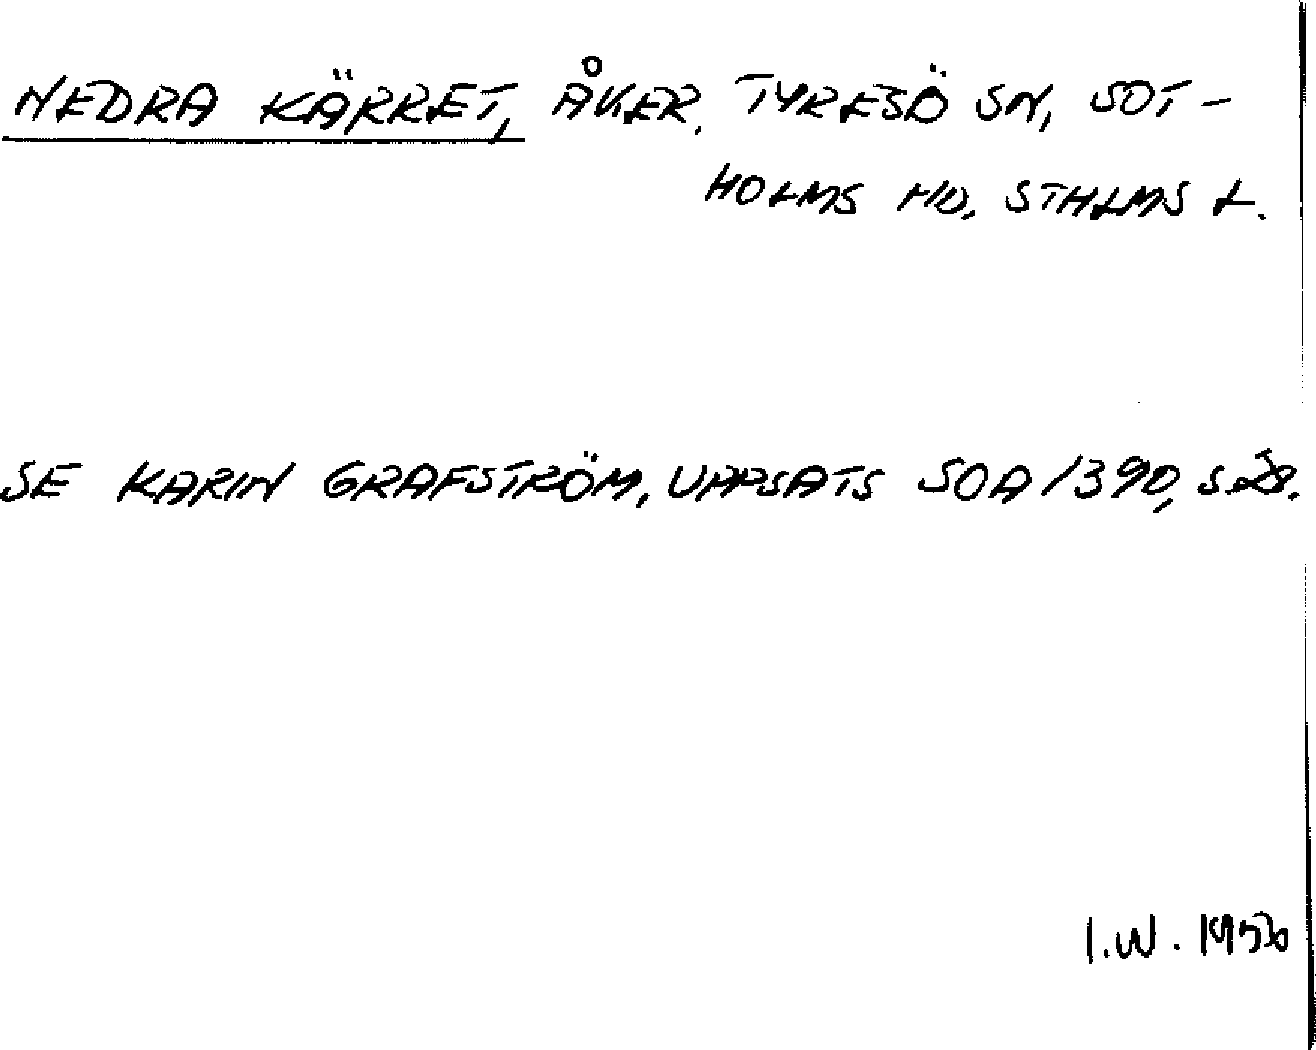 NEDRA KÄRRET, ÅKER, TYRESÖ SN, SOT-
HOLMS HD, STHLMS L.
SE KARIN GRAFSTRÖM, UPPSATS SOA 1390, S 28.
I.W. 1956